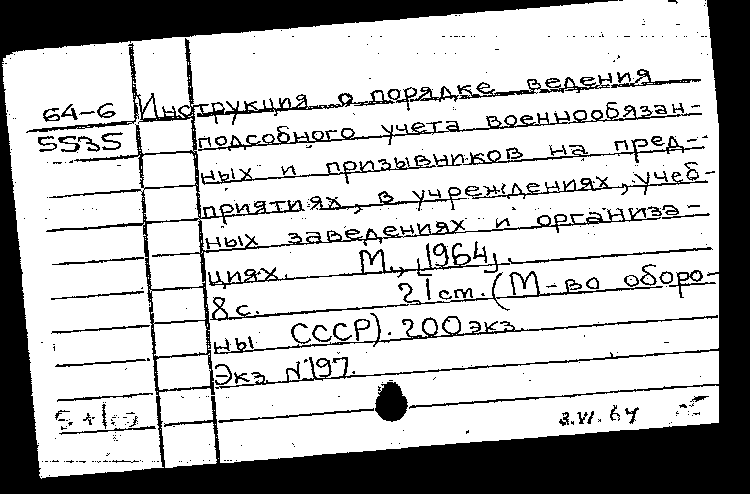 64-6 Инструкция о порядке ведения
5535 подсобного учета военнообязан-
ных и призывников на пред-
приятиях, в учреждениях, учеб-
ных заведениях и организа-
циях. М., [1964].
8 с. 21 ст. (М-во оборо-
ны СССР). 200 экз.
Экз. N 197.
3.VI.64